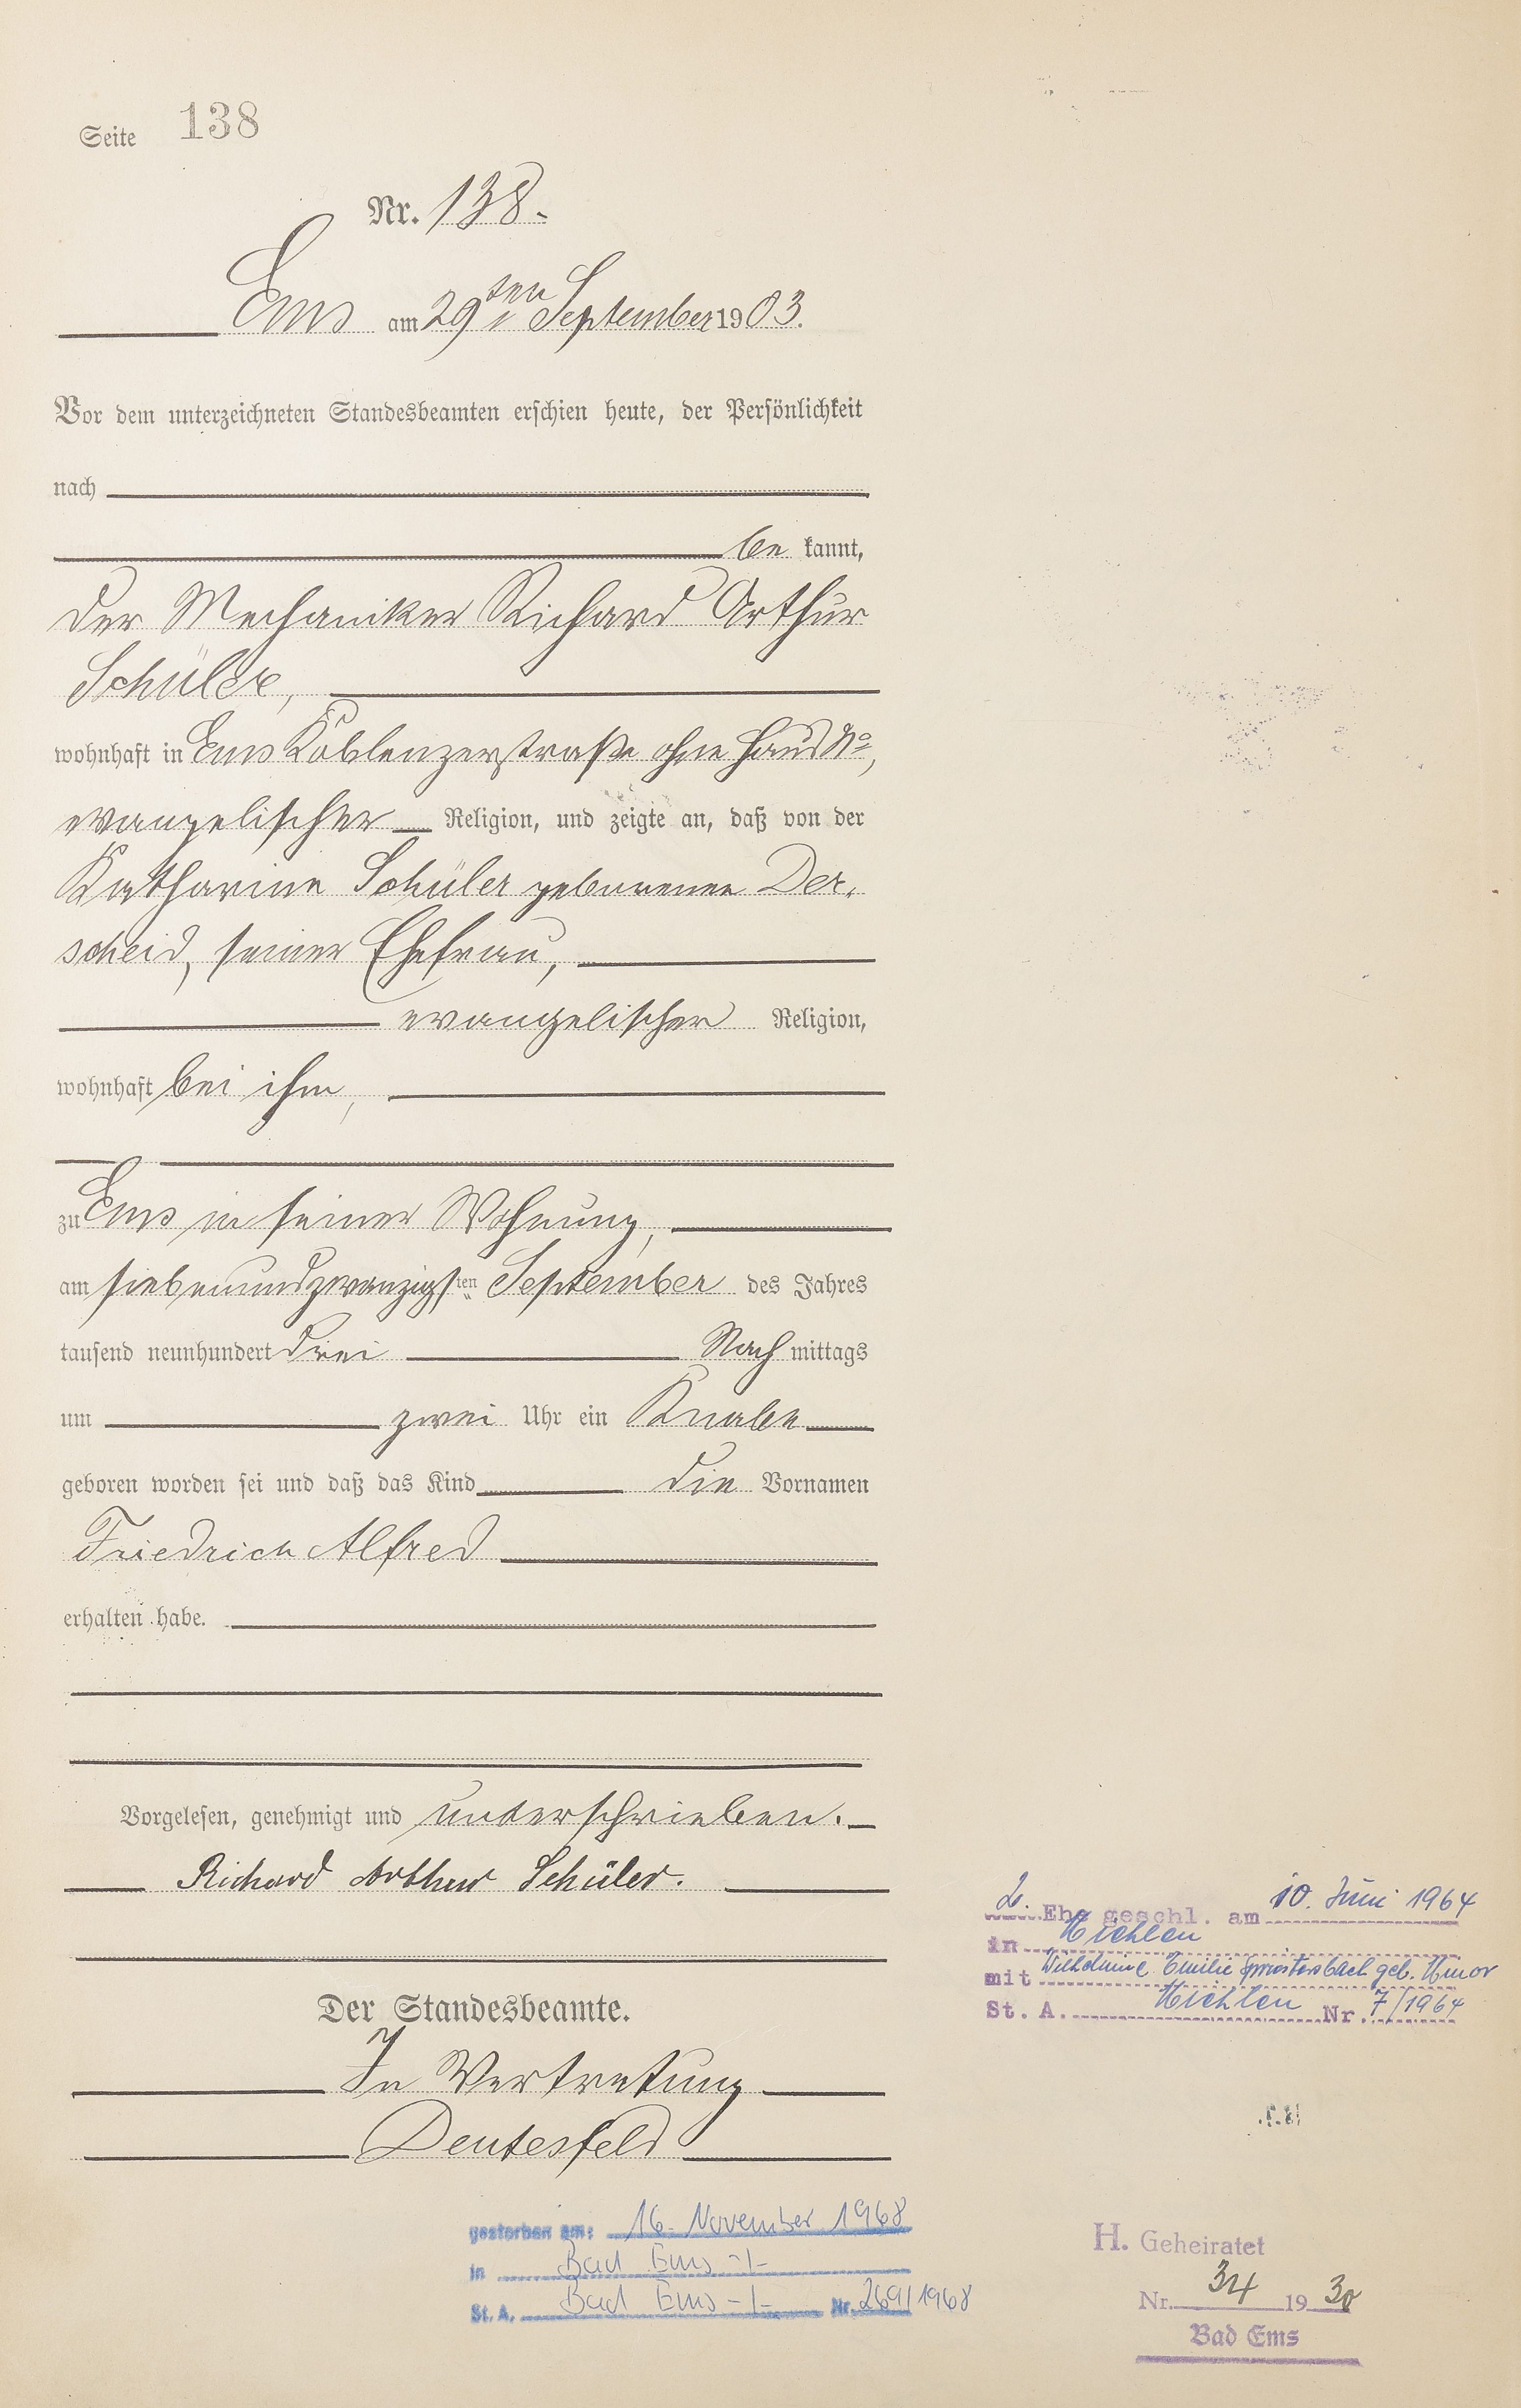 Seite 138
Nr. 138.
Ems am 29ten September 1903.
Vor dem unterzeichneten Standesbeamten erschien heute, der Persönlichkeit
nach
be kannt,
der Mechaniker Richard Arthur
Schüler,
wohnhaft in Ems Koblenzerstraße ohne Haus No,
evangelischer Religion, und zeigte an, daß von der
Katharina Schüler geborenen Der-
scheid, seiner Ehefrau,
evangelischer Religion,
wohnhaft bei ihm,
zu Ems in seiner Wohnung,
am siebenundzwanzigsten September des Jahres
tausend neunhundert drei Nach mittags
um zwei Uhr ein Knabe
geboren worden sei und daß das Kind die Vornamen
Friedrich Alfred
erhalten habe.
Vorgelesen, genehmigt und unterschrieben.
Richard Arthur Schüler.
Der Standesbeamte.
In Vertretung
Deutesfeld
2. Ehe geschl. am 10. Juni 1964
in Miehlen
mit Wilhelmine Emilie geb. Minor
St. A. Miehlen Nr. 7/1964
gestorben am: 16. November 1968
in Bad Ems -1-
St. A. Bad Ems -1- Nr. 269/1968
H. Geheiratet
Nr. 34 1930
Bad Ems